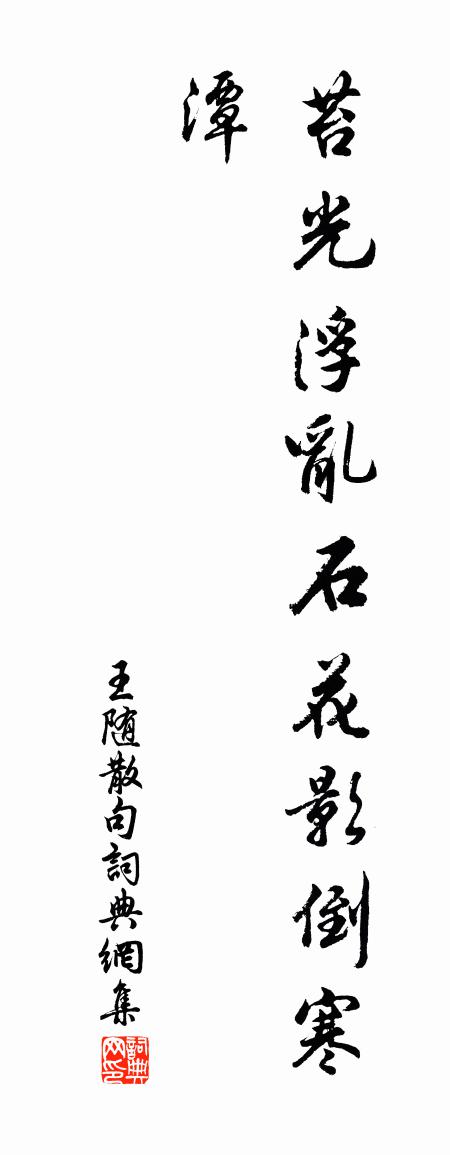 苔光浮亂石花影倒寒
潭
王随散句詞典網集
詞典网印